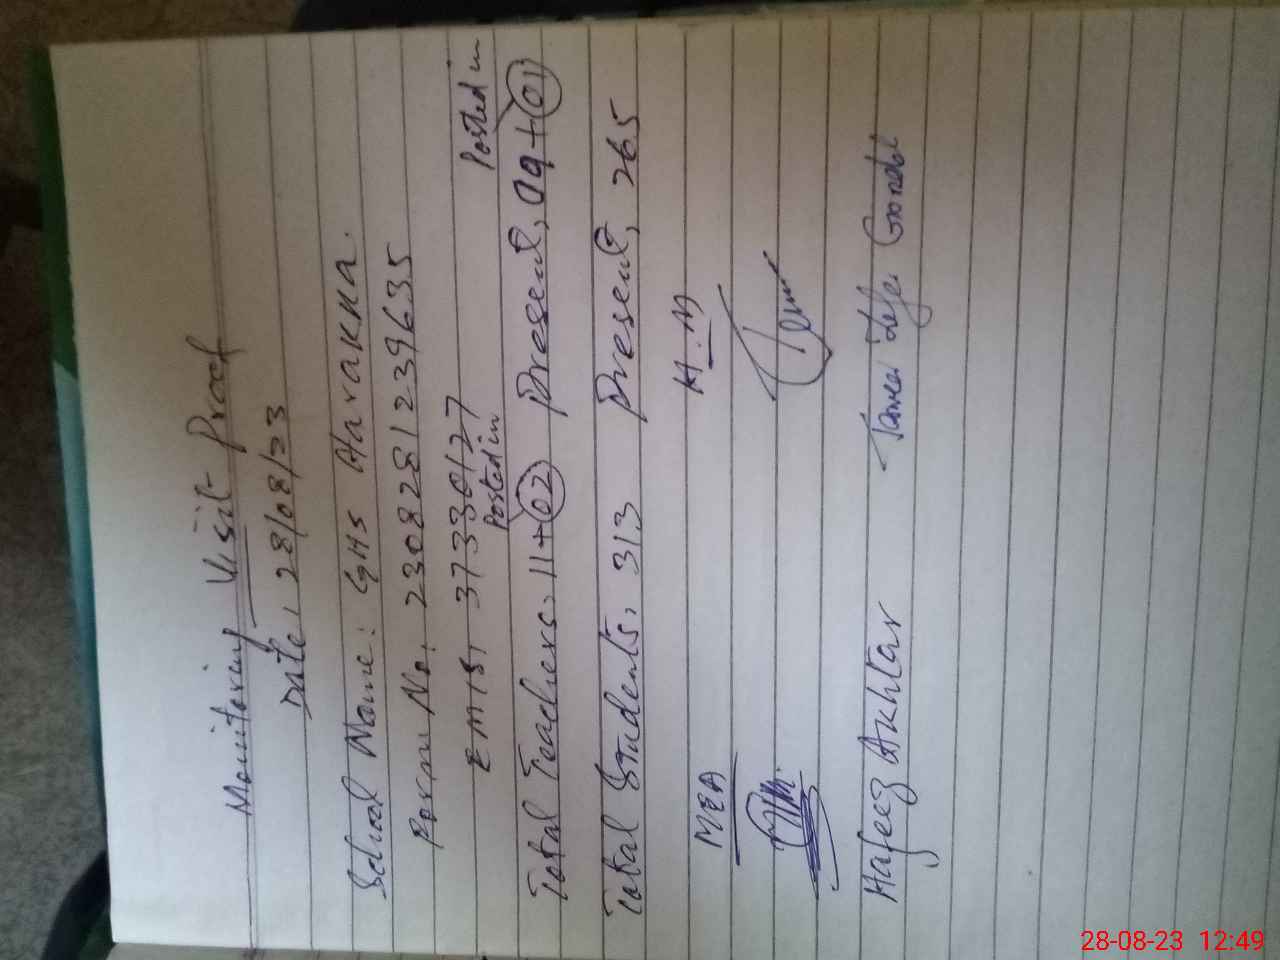 Monitoring Visit Proof
Date, 28/08/23
School Name: GHS Harakka.
Form No, 2308281239635
EMIS, 37330127
Posted in Posted in
Total Teachers, 11+02 Present, 09+01
Total Students, 313 Present, 265
MEA H.M
Hafeez Akhtar Gondal
28-08-23 12:49